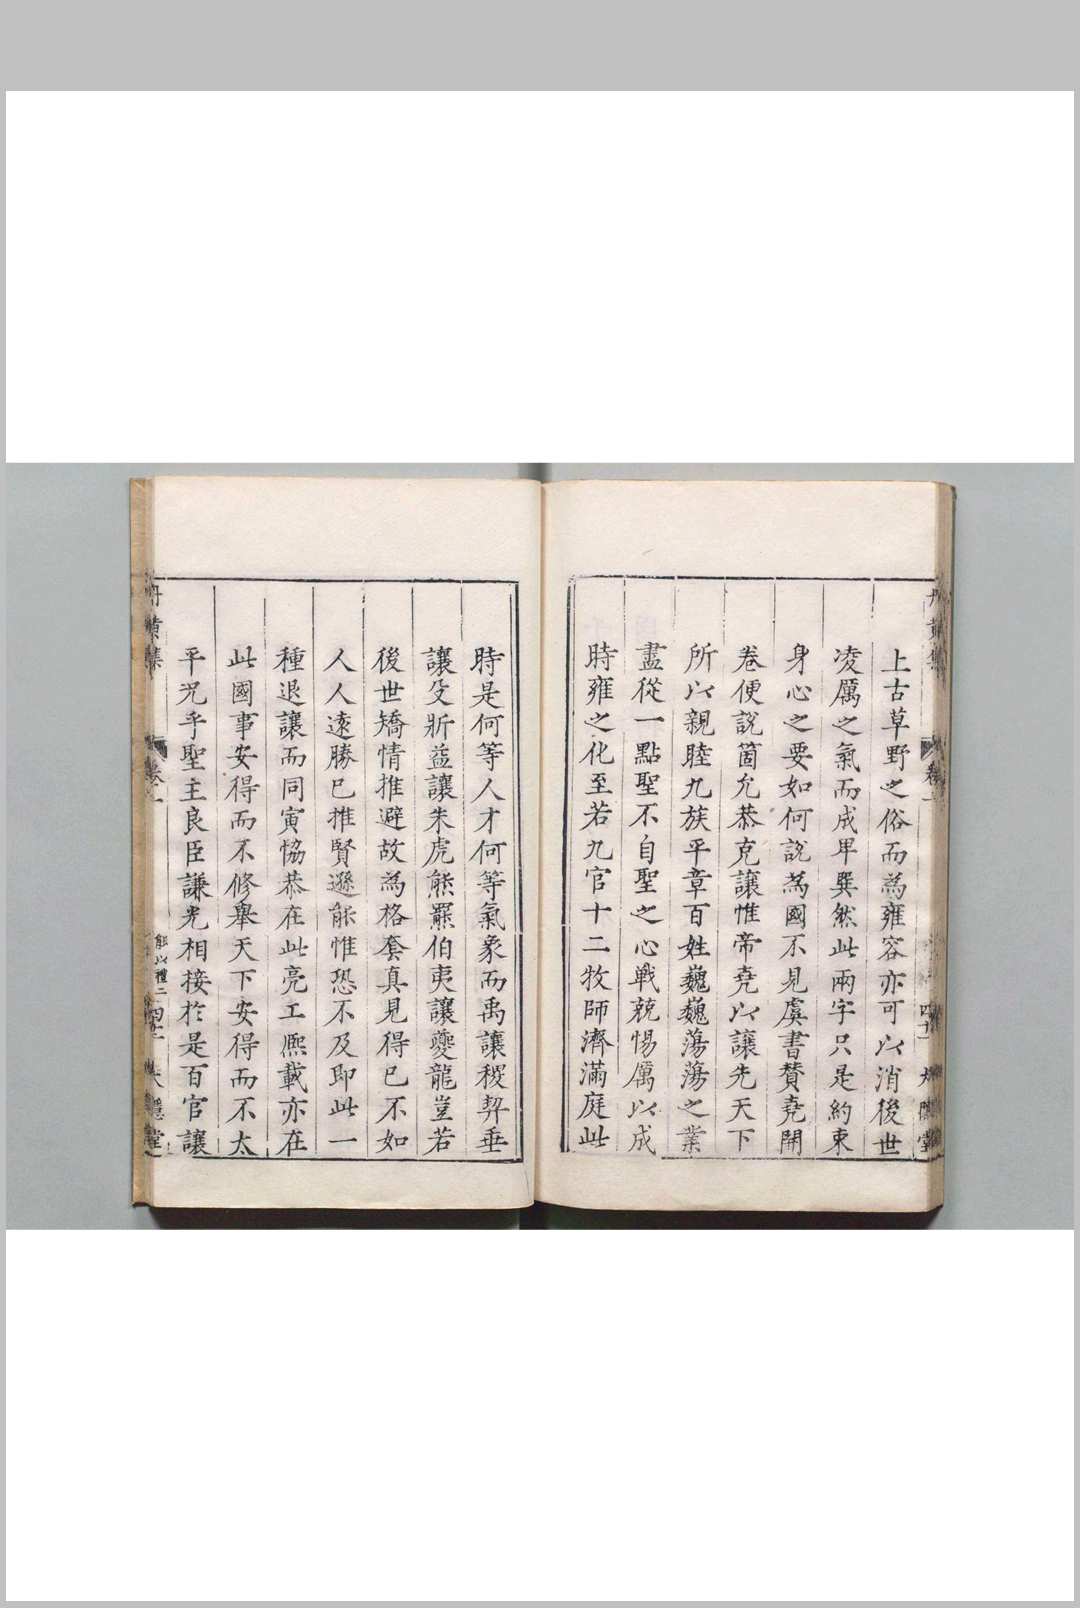 上古草野之俗而為雍容亦可以消後世
凌厲之氣而成卑巽然此兩字只是約束
身心之要如何說為國不見虞書贊堯開
卷便說箇允恭克讓惟帝堯以讓先天下
所以親睦九族平章百姓巍巍蕩蕩之業
盡從一點聖不自聖之心戰兢惕厲以成
時雍之化至若九官十二牧師濟滿庭此
時是何等人才何等氣象而禹讓稷契垂
讓殳斨益讓朱虎熊羆伯夷讓夔龍豈若
後世矯情推避故為格套真見得已不如
人人遠勝已推賢遜能惟恐不及即此一
種退讓而同寅恊恭在此亮工熈載亦在
此國事安得而不修舉天下安得而不太
平况乎聖主良臣謙光相接於是百官讓
丹黃集
卷二
能以禮二
大隱堂